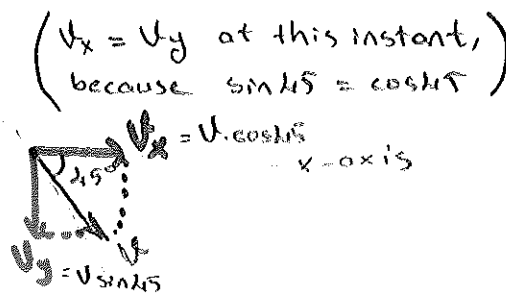 (Vx = Vy at this instant,
because sin45 = cos45)
Vx = V.cos45
x-axis
45
V
Vy = Vsin45